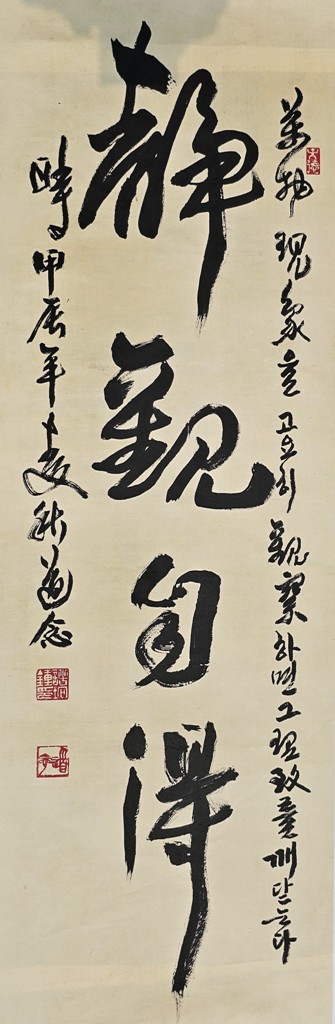 萬物 現象을 고요히 觀察하면 그 理致를 깨닫는다
靜觀自得
時 甲辰年 麥秋 道念